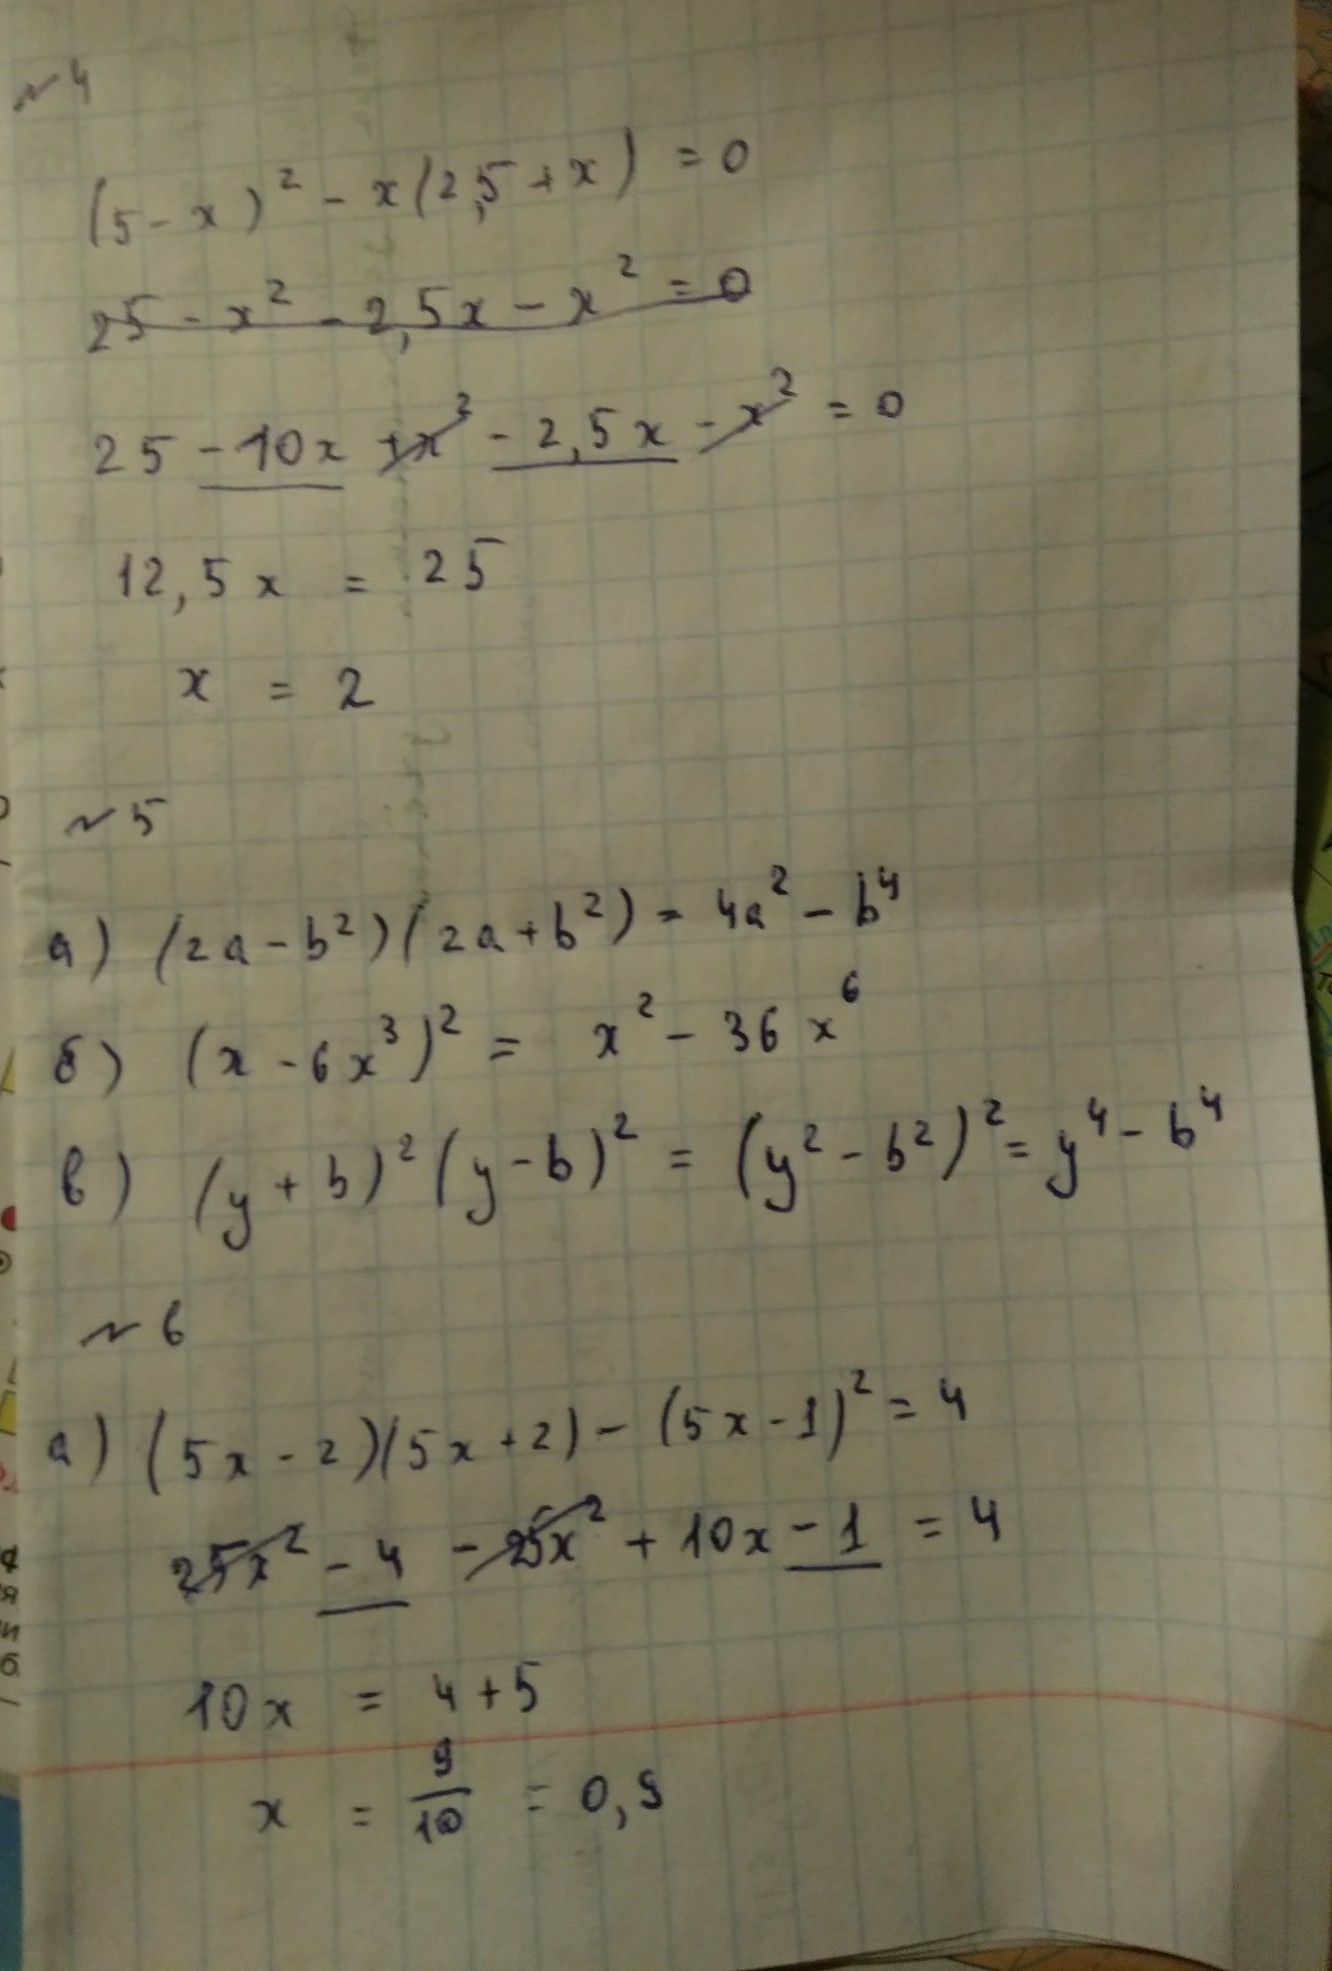 №4
(5 - x)² - x(2,5 + x) = 0
25 - x² - 2,5x - x² = 0
25 - 10x + x² - 2,5x - x² = 0
12,5x = 25
x = 2
№5
а) (2a - b²)(2a + b²) = 4a² - b⁴
б) (x - 6x³)² = x² - 36x⁶
в) (y + b)² (y - b)² = (y² - b²)² = y⁴ - b⁴
№6
а) (5x - 2)(5x + 2) - (5x - 1)² = 4
25x² - 4 - 25x² + 10x - 1 = 4
10x = 4 + 5
x = 9/10 = 0,9